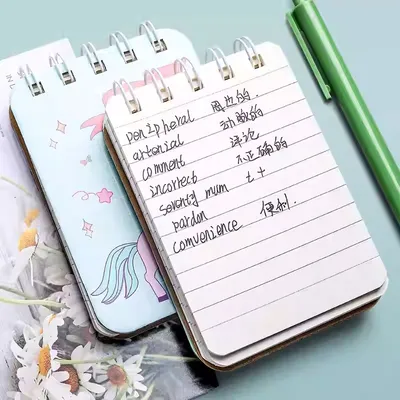 peripheral 周边的.
arterial 动脉的
comment 评论
incorrect 不正确的
seventy mum t+
pardon
comvenience 便利.